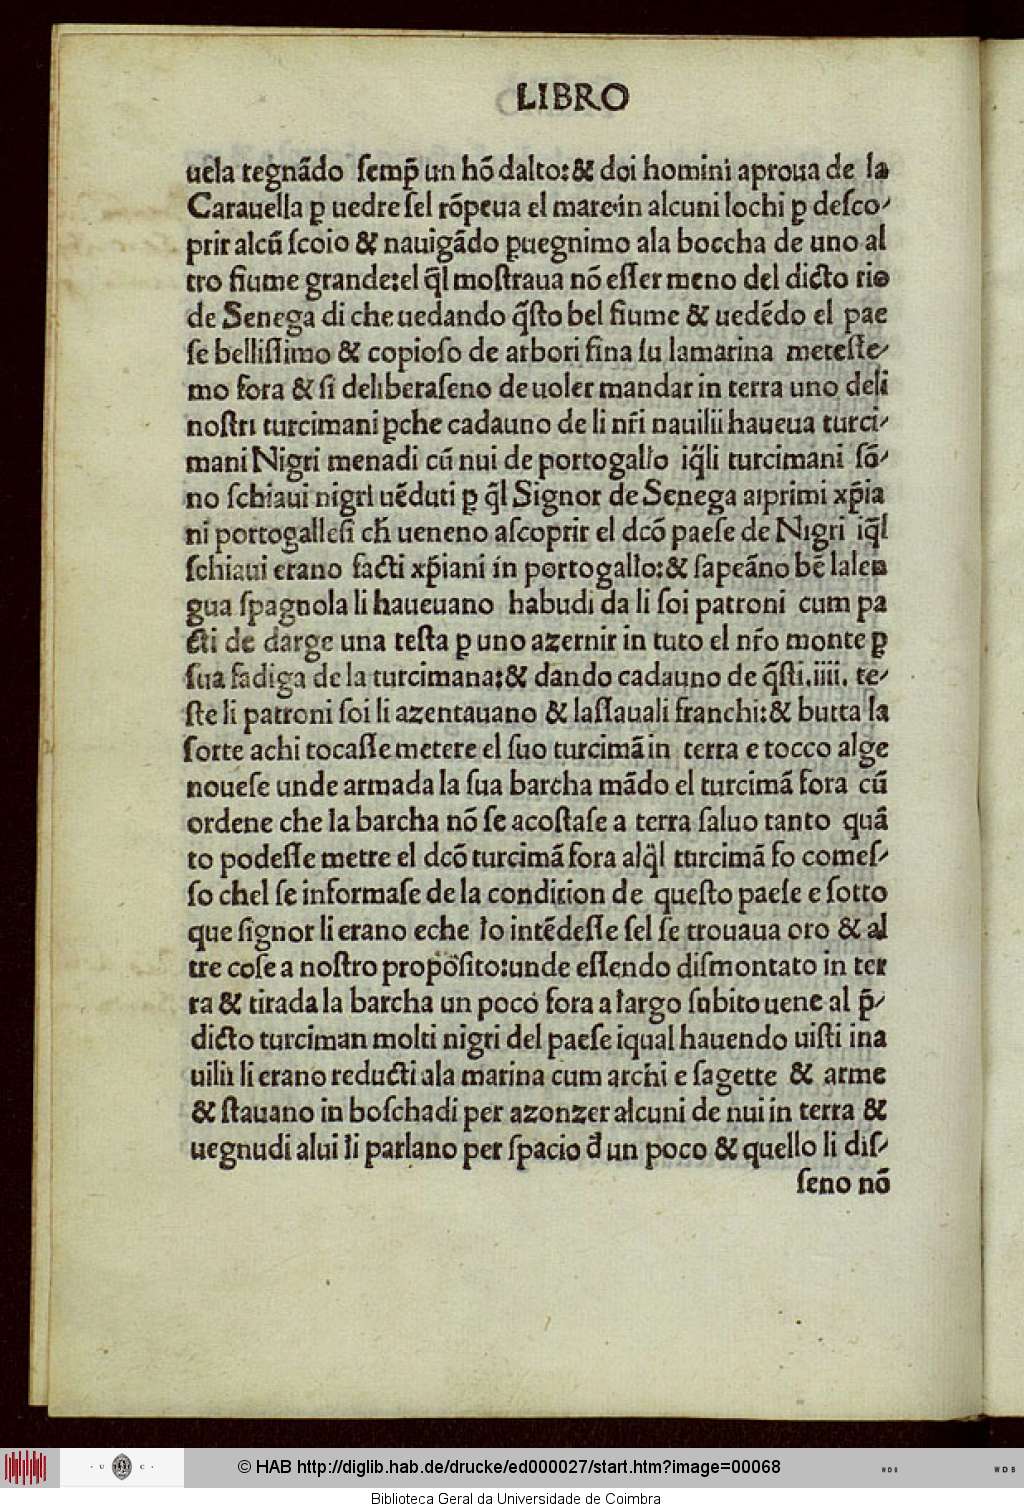 LIBRO
uela tegnãdo ſemp̃ un hõ dalto:& doi homini aproua de la
Carauella ꝑ uedre ſel rõpeua el mare in alcuni lochi ꝑ deſco⸗
prir alcũ ſcoio & nauigãdo ꝑuegnimo ala boccha de uno al
tro fiume grande:el q̃l moſtraua nõ eſſer meno del dicto rio
de Senega di che uedando q̃ſto bel fiume & uedẽdo el pae
ſe belliſſimo & copioſo de arbori fina ſu lamarina meteſſe⸗
mo fora & ſi deliberaſeno de uoler mandar in terra uno deli
noſtri turcimani ꝑche cadauno de li nr̃i nauilii haueua turci⸗
mani Nigri menadi cũ nui de portogallo iq̃li turcimani ſõ⸗
no ſchiaui nigri uẽduti ꝑ q̃l Signor de Senega aiprimi xp̃ia
ni portogalleſi ch̃ ueneno aſcoprir el dcõ paeſe de Nigri iq̃l
ſchiaui erano facti xp̃iani in portogallo:& ſapeãno bẽ lalen
gua ſpagnola li haueuano habudi da li ſoi patroni cum pa
cti de darge una teſta ꝑ uno azernir in tuto el nr̃o monte ꝑ
ſua fadiga de la turcimana:& dando cadauno de q̃ſti.iiii. te⸗
ſte li patroni ſoi li azentauano & laſſauali franchi:& butta la
ſorte achi tocaſſe metere el ſuo turcimã in terra e tocco alge
noueſe unde armada la ſua barcha mãdo el turcimã fora cũ
ordene che la barcha nõ ſe acoſtaſe a terra ſaluo tanto quã
to podeſſe metre el dcõ turcimã fora alq̃l turcimã fo comeſ⸗
ſo chel ſe informaſe de la condition de queſto paeſe e ſotto
que ſignor li erano eche lo intẽdeſſe ſel ſe trouaua oro & al
tre coſe a noſtro propoſito:unde eſſendo diſmontato in ter
ra & tirada la barcha un poco fora a largo ſubito uene al p̃⸗
dicto turciman molti nigri del paeſe iqual hauendo uiſti ina
uilii li erano reducti ala marina cum archi e ſagette & arme
& ſtauano in boſchadi per azonzer alcuni de nui in terra &
uegnudi alui li parlano per ſpacio đ un poco & quello li diſ⸗
ſeno nõ
· U C ·
© HAB http://diglib.hab.de/drucke/ed000027/start.htm?image=00068
WDB
WDB
Biblioteca Geral da Universidade de Coimbra